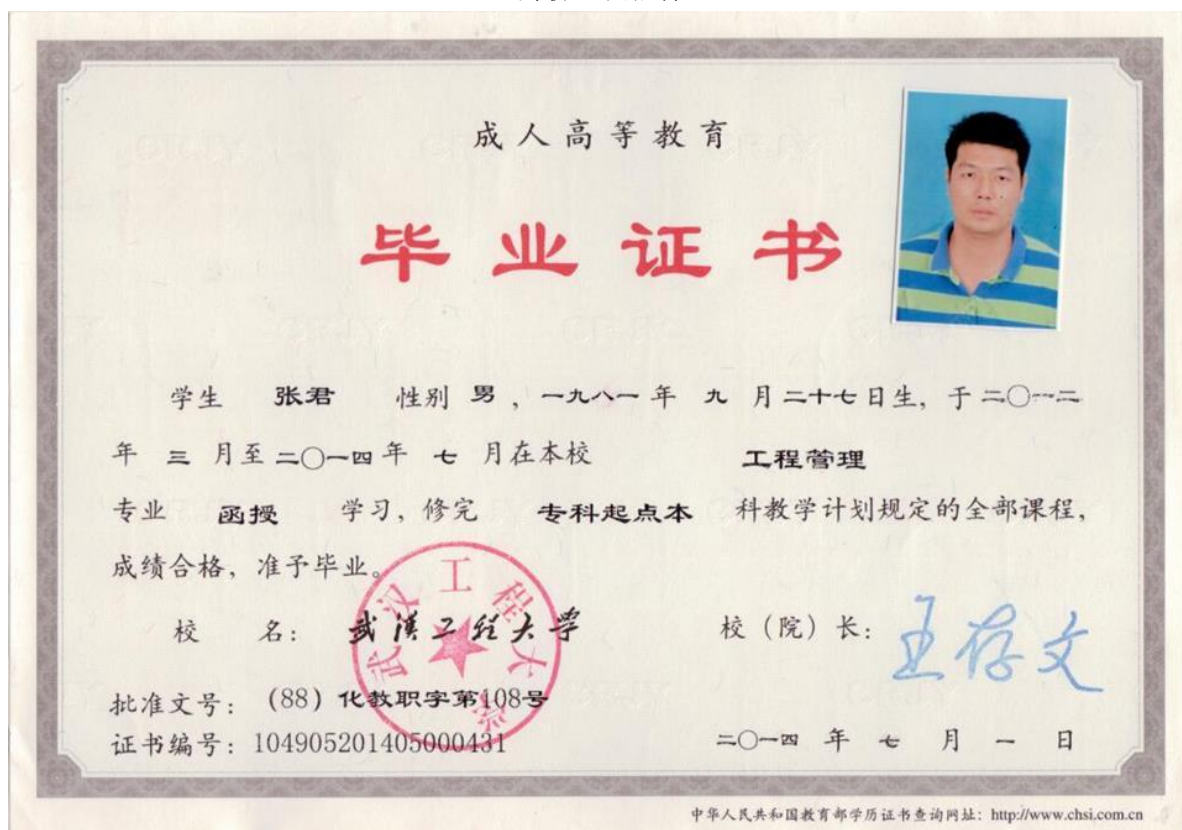 成人高等教育
毕业证书
学生 张君 性别 男，一九八一年 九 月二十七日生，于二〇一二
年 三 月至二〇一四年 七 月在本校 工程管理
专业 函授 学习，修完 专科起点本 科教学计划规定的全部课程，
成绩合格，准予毕业。
武汉工程大学
校 名：武汉工程大学 校（院）长：王存文
批准文号：（88）化教职字第108号
证书编号：104905201405000431 二〇一四 年 七 月 一 日
中华人民共和国教育部学历证书查询网址：http://www.chsi.com.cn